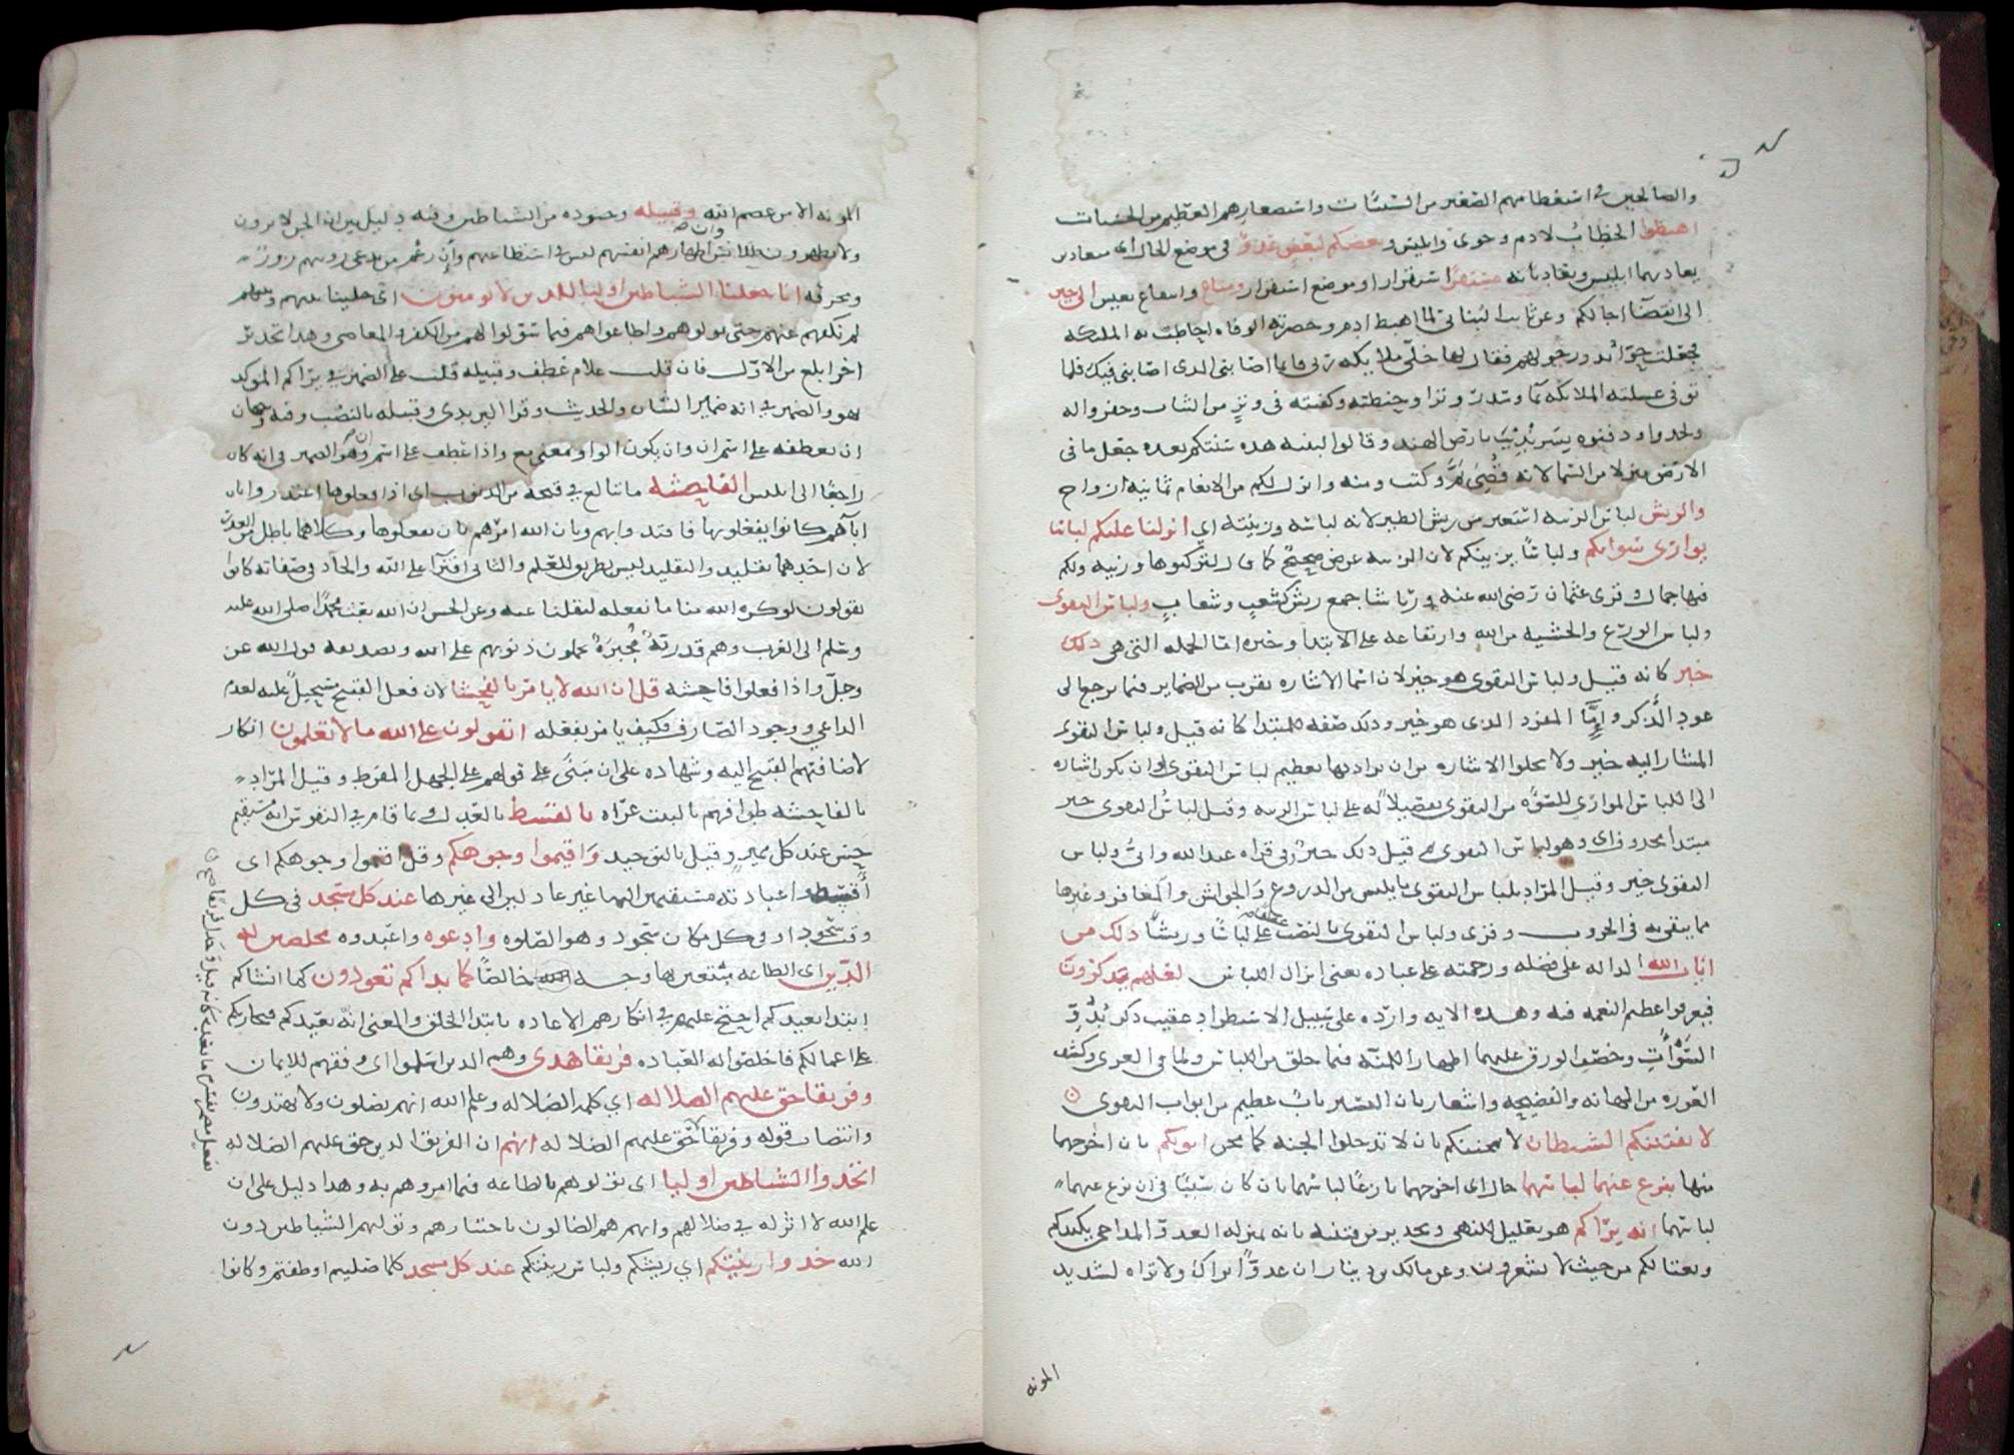 والصالحين في استعظامهم الصغير من السيئات واستصغارهم العظيم من الحسنات
اهبطوا الخطاب لادم وحوى وابليس وبعضكم لبعض عدو في موضع الحال اي متعادين
يعاديهما ابليس ويعاديانه مستقر استقرار او موضع استقرار ومتاع وانتفاع بعيش الى حين
الى انقضا اجالكم وعن ثابت البناني لما اهبط ادم وحضرته الوفاه احاطت به الملئكه
فجعلت حوا تدور حولهم فقال لها خلي ملايكه ربي فانما اصابني الذي اصابني فيك فلما
توفي غسلته الملائكه بما وسدر وترا وحنطته وكفنته في وتر من الثياب وحفروا له
ولحدوا ودفنوه بسرنديب بارض الهند وقالوا لبنيه هذه سنتكم بعده جعل ما في
الارض منزلا من السما لانه قضي ثم وكتب ومنه وانزل لكم من الانعام ثمانيه ازواج
والريش لباس الزينه استعير من ريش الطير لانه لباسه وزينته اي انزلنا عليكم لباسا
يواري سواتكم ولباسا يزينكم لان الزينه غرض صحيح كما قال لتركبوها وزينه ولكم
فيها جمال وقرى عثمان رضي الله عنه ورياشا جمع ريش كشعب وشعاب ولباس التقوى
ولباس الورع والخشيه من الله وارتفاعه على الابتدا وخبره اما الجمله التي هي ذلك
خير كانه قيل ولباس التقوى هو خير لان اسما الاشاره تقرب من الضماير فيما يرجع الى
عود الذكر واما المفرد الذي هو خير وذلك صفه للمبتدا كانه قيل ولباس التقوى
المشار اليه خير ولا تخلوا الاشاره من ان يراد بها تعظيم لباس التقوى او ان تكون اشاره
الى اللباس المواري للسوءه من التقوى تفضيلا له على لباس الزينه وقيل لباس التقوى خبر
مبتدا محذوف اي وهو لباس التقوى ثم قيل ذلك خير وفي قراه عبد الله وابي ولباس
التقوى خير وقيل المراد بلباس التقوى ما يلبس من الدروع والجواشن والمغافر وغيرها
مما يتقى به في الحروب وقرى ولباس التقوى بالنصب عطفا على لباسا وريشا ذلك من
ايات الله الداله على فضله ورحمته على عباده يعني انزال اللباس لعلهم يذكرون
فيعرفوا عظيم النعمه فيه وهذه الايه وارده على سبيل الاستطراد عقيب ذكر بدو
السوات وخصف الورق عليها اظهارا للمنه فيما خلق من اللباس ولما في العرى وكشف
العوره من المهانه والفضيحه واشعارا بان التستر باب عظيم من ابواب التقوى
لا يفتننكم الشيطان لا يمحننكم بان لا تدخلوا الجنه كما محن ابويكم بان اخرجهما
منها ينزع عنهما لباسهما حال اي اخرجهما نازعا لباسهما بان كان سببا في ان نزع عنهما
لباسهما انه يراكم هو تعليل للنهي وتحذير من فتنته بانه بمنزله العدو المداجي يكيدكم
ويغتالكم من حيث لا تشعرون وعن مالك بن دينار ان عدوا يراك ولا تراه لشديد
المونه
المونه الا من عصم الله وقبيله وجنوده من الشياطين وفيه دليل بين ان الجن لا يرون
ولا يظهرون للانس وان اظهارهم انفسهم ليس في استطاعتهم وان زعم من يدعي رويتهم زور
ومخرقه انا جعلنا الشياطين اوليا للذين لا يومنون اي خلينا بينهم وبينهم
لم نكفهم عنهم حتى تولوهم واطاعوهم فيما سولوا لهم من الكفر والمعاصي وهذا تحذير
اخر ابلغ من الاول فان قلت علام عطف وقبيله قلت على الضمير في يراكم الموكد
بهو والضمير في انه ضمير الشان والحديث وقرا اليزيدي وقبيله بالنصب وفيه وجهان
ان يعطفه على اسم ان وان يكون الواو بمعنى مع واذا عطف على اسم ان وهو الضمير في انه كان
راجعا الى ابليس الفاحشه ما تبالغ في قبحه من الذنوب اي اذا فعلوها اعتذروا بان
اباهم كانوا يفعلونها فاقتدوا بهم وبان الله امرهم بان يفعلوها وكلاهما باطل من العذر
لان احدهما تقليد والتقليد ليس بطريق للعلم والثاني افترا على الله والحاد في صفاته كانوا
يقولون لو كره الله منا ما نفعله لنقلنا عنه وعن الحسن ان الله بعث محمدا صلى الله عليه
وسلم الى العرب وهم قدريه مجبره يحملون ذنوبهم على الله وتصديقه قول الله عز
وجل واذا فعلوا فاحشه قل ان الله لا يامر بالفحشا لان فعل القبيح مستحيل عليه لعدم
الداعي ووجود الصارف فكيف يامر بفعله اتقولون على الله ما لا تعلمون انكار
لاضافتهم القبيح اليه وشهاده على ان مبنى على قولهم على الجهل المفرط وقيل المراد
بالفاحشه طوافهم بالبيت عراه بالقسط بالعدل وبما قام في النفوس انه مستقيم
حسن عند كل مميز وقيل بالتوحيد واقيموا وجوهكم وقل اقيموا وجوهكم اي
اقصدوا عبادته مستقيمين اليها غير عادلين الى غيرها عند كل مسجد في كل
وقت سجود او في كل مكان سجود وهو الصلوه وادعوه واعبدوه مخلصين له
الدين اي الطاعه مبتغين بها وجه الله خالصا كما بداكم تعودون كما انشاكم
ابتدا يعيدكم احتج عليهم في انكارهم الاعاده بابتدا الخلق والمعنى انه يعيدكم فيجازيكم
على اعمالكم فاخلصوا له العباده فريقا هدى وهم الذين اسلموا اي وفقهم للايمان
وفريقا حق عليهم الضلاله اي كلمه الضلاله وعلم الله انهم يضلون ولا يهتدون
وانتصاب قوله وفريقا حق عليهم الضلاله انهم ان الفريق الذين حق عليهم الضلاله
اتخذوا الشياطين اوليا اي تولوهم بالطاعه فيما امروهم به وهذا دليل على ان
علم الله لا اثر له في ضلالهم وانهم هم الضالون باختيارهم وتوليهم الشياطين دون
الله خذوا زينتكم اي ريشكم ولباس زينتكم عند كل مسجد كلما صليتم او طفتم وكانوا
بفعل مضمر يفسره ما بعده كانه قيل وخذل فريقا